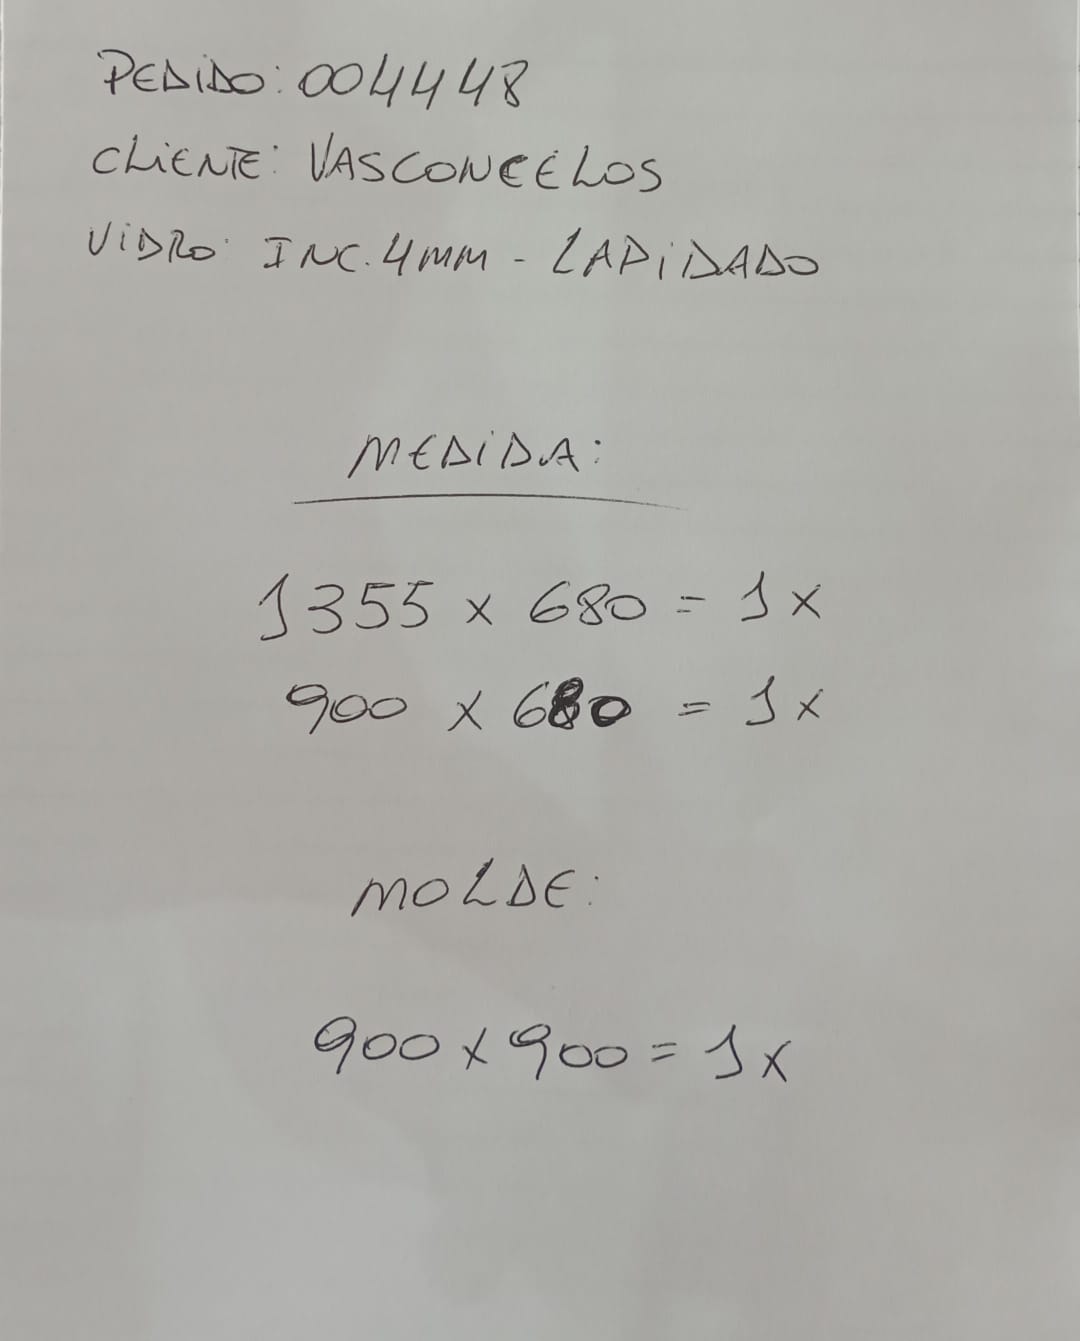 PEDIDO: 004448
CLIENTE: VASCONCELOS
VIDRO: INC. 4MM - LAPIDADO
MEDIDA:
1355 x 680 = 1x
900 x 680 = 1x
MOLDE:
900 x 900 = 1x